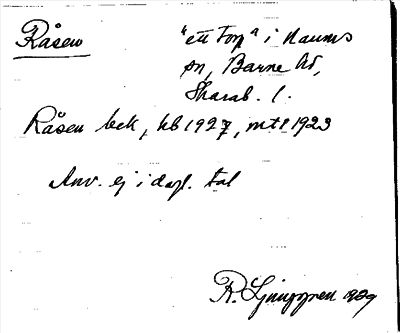 Råsen "ett Torp" i Naums
sn, Barne hd,
Skarab. l.
Råsen bek, kb 1927, mtl 1923
Anv. ej i dagl. tal
R. Ljunggren 1929